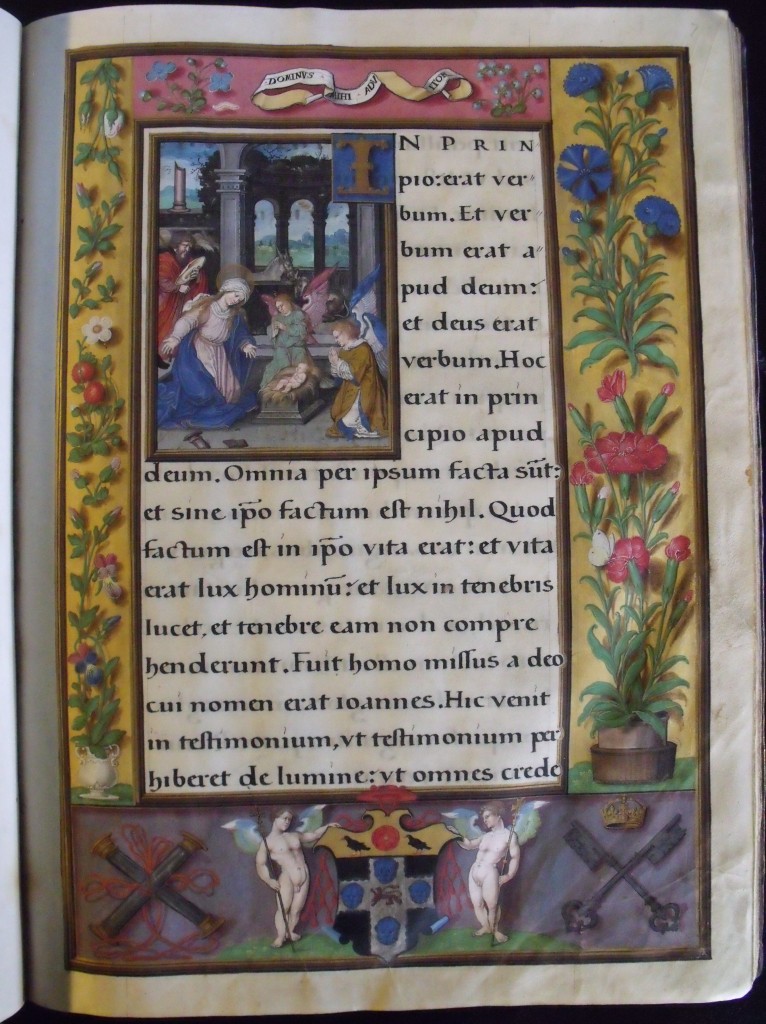 DOMINVS MIHI ADIVTOR
IN PRIN
pio:erat ver"
bum. Et ver"
bum erat a"
pud deum:
et deus erat
verbum. Hoc
erat in prin
cipio apud
deum. Omnia per ipsum facta sūt:
et sine ip̄o factum est nihil. Quod
factum est in ip̄o vita erat: et vita
erat lux hominū: et lux in tenebris
lucet, et tenebre eam non compre
henderunt. Fuit homo missus a deo
cui nomen erat ioannes. Hic venit
in testimonium, vt testimonium per
hiberet de lumine: vt omnes crede